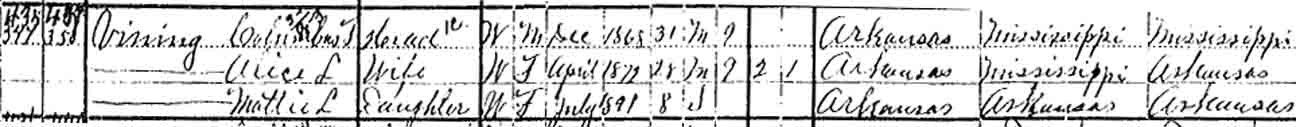 Vining Columbus T Head W M Dec 1868 31 M 9 Arkansas Mississippi Mississippi
Alice L Wife W F April 1872 28 M 9 2 1 Arkansas Mississippi Arkansas
Mattie L Daughter W F July 1891 8 S Arkansas Arkansas Arkansas